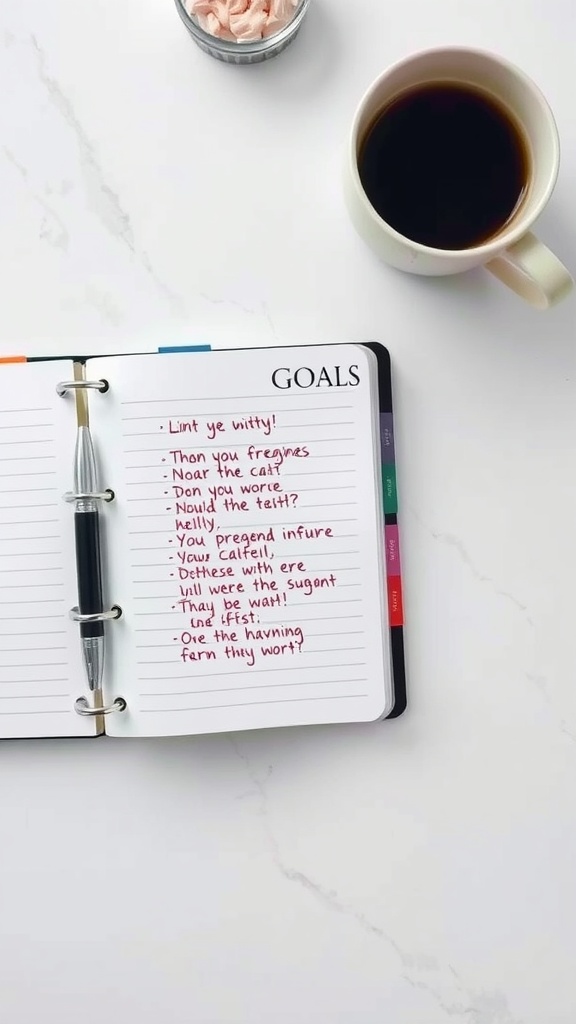 GOALS
- Lint ye vitty!
- Thon you fregines
- Noar the cat?
- Don you worre
- Nould the teitl?
helly.
- You pregend infure
- Your calfell,
- Dethese with ere
will were the sugont
- Thay be wat!
- Ore the havning
farn they wort?